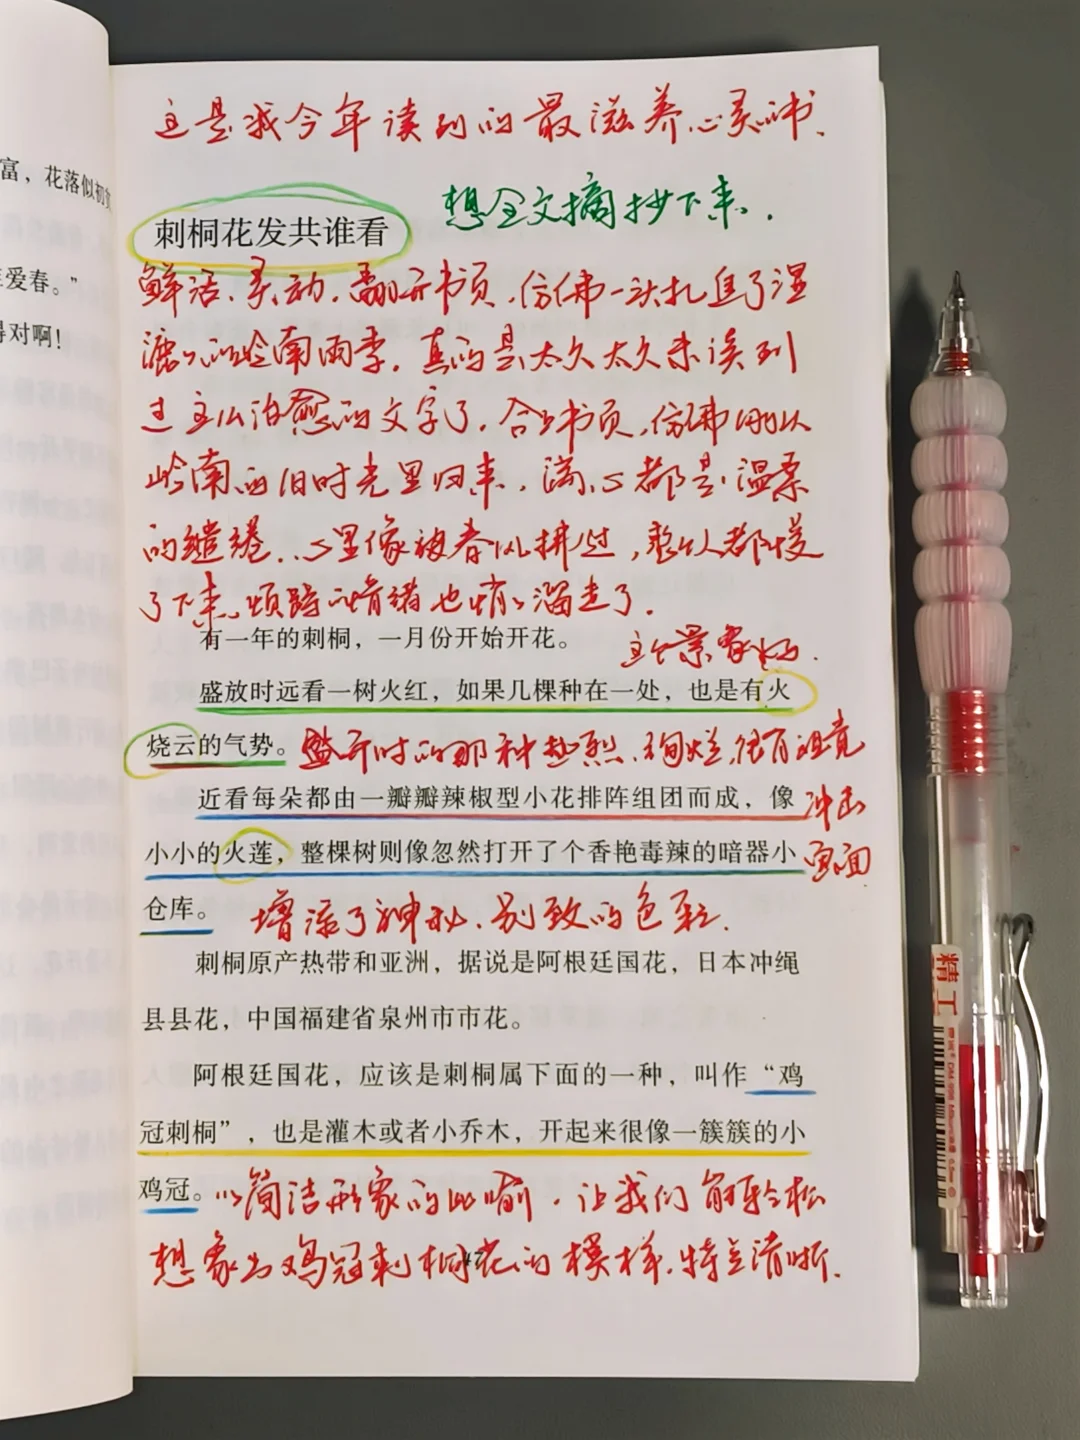 富，花落似初贫
爱春。”
得对啊！
这是我今年读到的最滋养心灵的书、
想全文摘抄下来、.
刺桐花发共谁看
鲜活、灵动、翻开书页、仿佛一头扎进了湿
漉漉的岭南雨季，真的是太久太久未读到
过这么治愈的文字了，合上书页，仿佛刚从
岭南的旧时光里归来，满心都是温柔
的缱绻、心里像被春风拂过，整个人都慢
了下来，烦躁的情绪也悄悄溜走了.
有一年的刺桐，一月份开始开花。
这个景象好美.
盛放时远看一树火红，如果几棵种在一处，也是有火
烧云的气势。盛开时的那种热烈、绚烂，很有视觉
近看每朵都由一瓣瓣辣椒型小花排阵组团而成，像 冲击
小小的火莲，整棵树则像忽然打开了个香艳毒辣的暗器小 画面
仓库。增添了神秘、别致的色彩.
刺桐原产热带和亚洲，据说是阿根廷国花，日本冲绳
县县花，中国福建省泉州市市花。
阿根廷国花，应该是刺桐属下面的一种，叫作“鸡
冠刺桐”，也是灌木或者小乔木，开起来很像一簇簇的小
鸡冠。以简洁形象的比喻，让我们能轻松
想象出鸡冠刺桐花的模样，特点清晰.
精工